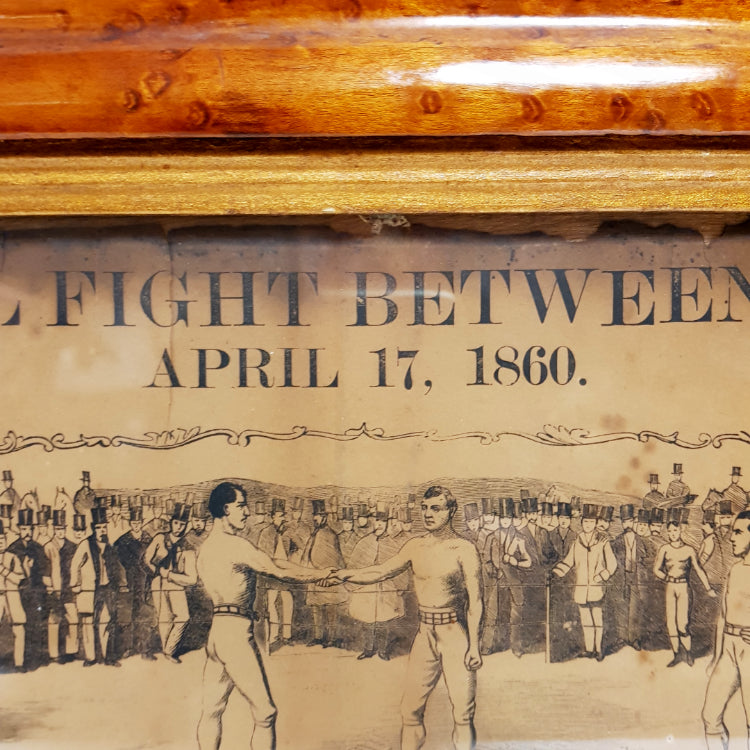 L FIGHT BETWEEN
APRIL 17, 1860.